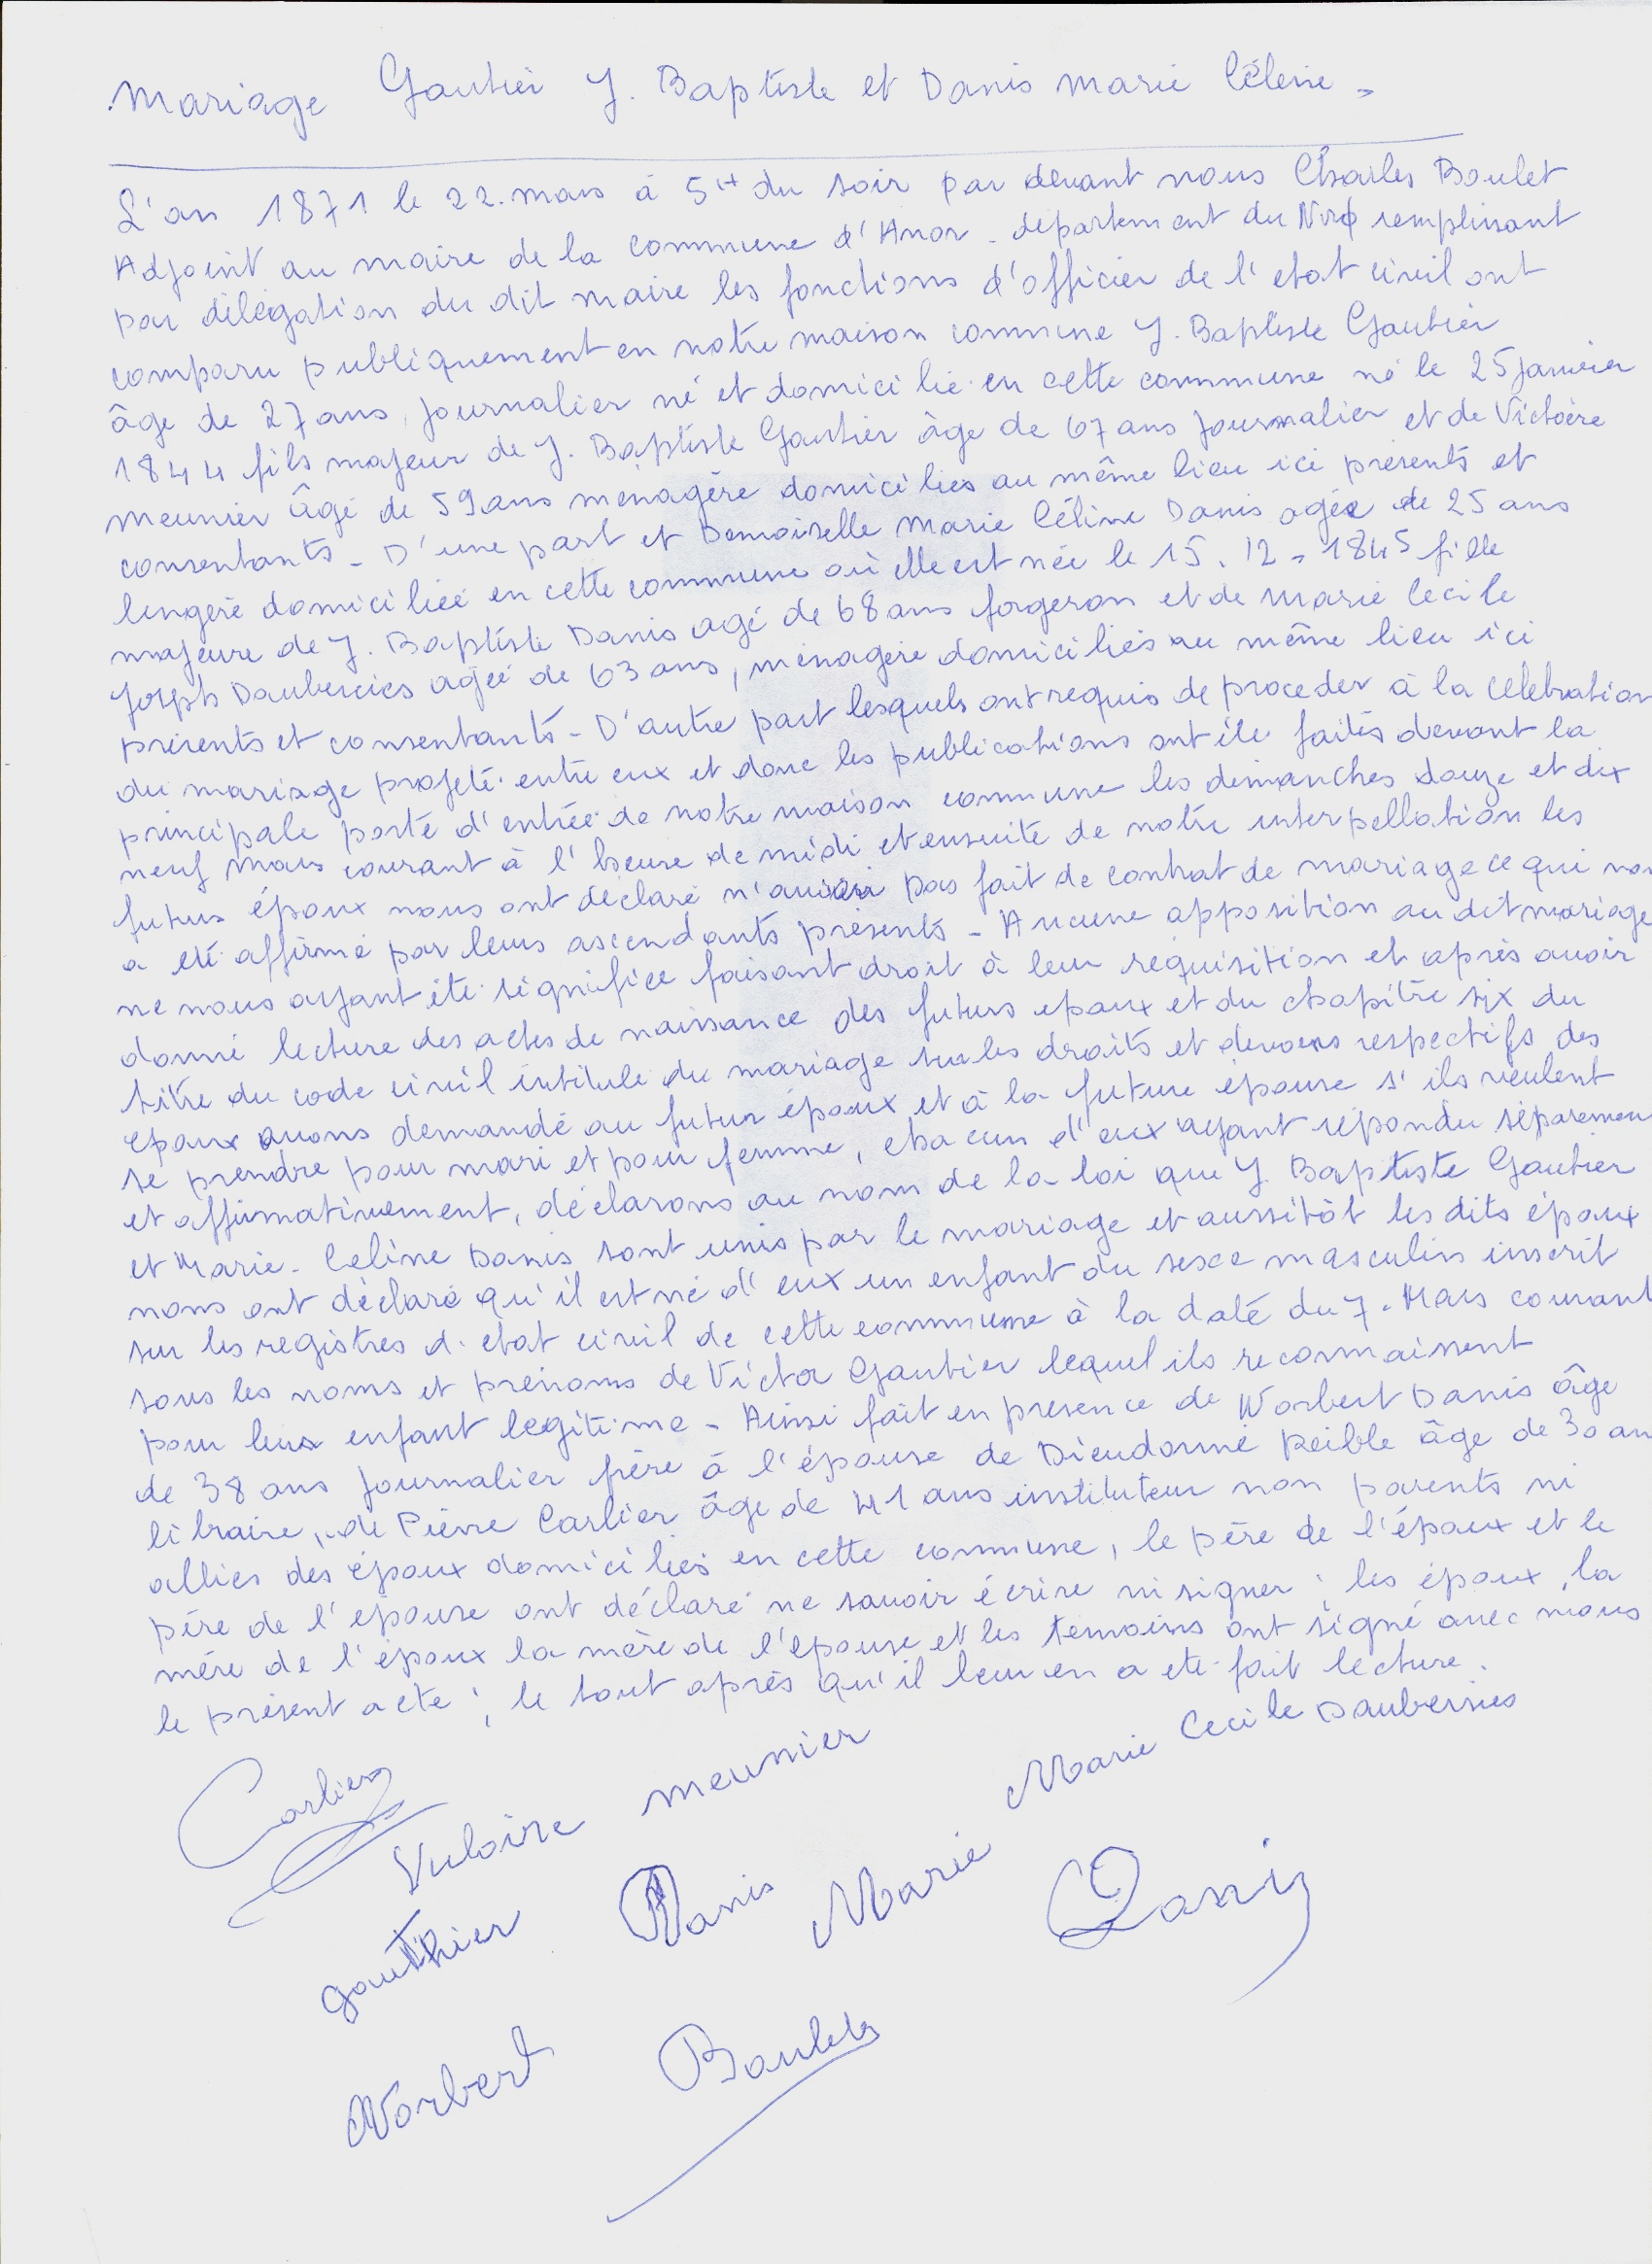 Mariage Gautier J. Baptiste et Danis Marie Céline -
L'an 1871 le 22. mars à 5H du soir par devant nous Charles Boulet
Adjoint au maire de la commune d'Anor - departement du Nord remplissant
par délégation du dit maire les fonctions d'officier de l'etat civil ont
comparu publiquement en notre maison commune J. Baptiste Gautier
âge de 27 ans, journalier né et domicilié en cette commune né le 25 janvier
1844 fils majeur de J. Baptiste Gautier âge de 67 ans journalier et de Victoire
Meunier âgé de 59 ans ménagère domiciliés au même lieu ici présents et
consentants - D'une part et Demoiselle Marie Céline Danis agée de 25 ans
lingère domiciliée en cette commune où elle est née le 15. 12 - 1845 fille
majeure de J. Baptiste Danis agé de 68 ans forgeron et de Marie Cécile
Joseph Daubercies agée de 63 ans, ménagère domiciliés au même lieu ici
présents et consentants - D'autre part lesquels ont requis de proceder à la célébration
du mariage projeté entre eux et donc les publications ont été faites devant la
principale porte d'entrée de notre maison commune les dimanches douze et dix
neuf mars courant à l'heure de midi et ensuite de notre interpellation les
futurs époux nous ont déclaré n'avoir pas fait de contrat de mariage ce qui nou
a été affirmé par leurs ascendants présents - Aucune apposition au dit mariage
ne nous ayant été signifiée faisant droit à leur réquisition et après avoir
donné lecture des actes de naissance des futurs epoux et du chapitre six du
titre du code civil intitulé du mariage sur les droits et devoirs respectifs des
epoux avons demandé au futur époux et à la future épouse s'ils veulent
se prendre pour mari et pour femme, chacun d'eux ayant répondu séparemen
et affirmativement, déclarons au nom de la loi que J. Baptiste Gautier
et Marie - Celine Danis sont unis par le mariage et aussitôt les dits époux
nous ont déclaré qu'il est né d'eux un enfant du sexe masculin inscrit
sur les registres d. etat civil de cette commune à la date du 7. Mars courant
sous les noms et prénoms de Victor Gautier lequel ils reconnaissent
pour leur enfant legitime - Ainsi fait en presence de Norbert Danis âge
de 38 ans journalier frère à l'épouse de Dieudonné Reible âge de 30 an
libraire, de Pierre Carlier âge de 41 ans instituteur non parents ni
alliés des époux domiciliés en cette commune, le père de l'époux et le
père de l'épouse ont déclaré ne savoir écrire ni signer ; les époux, la
mère de l'époux la mère de l'épouse et les temoins ont signé avec nous
le présent acte ; le tout après qu'il leur en a ete fait lecture.
Carlier Meunier Marie Cecile Daubersies
Danis Marie
gauthier
Norbert Boulet